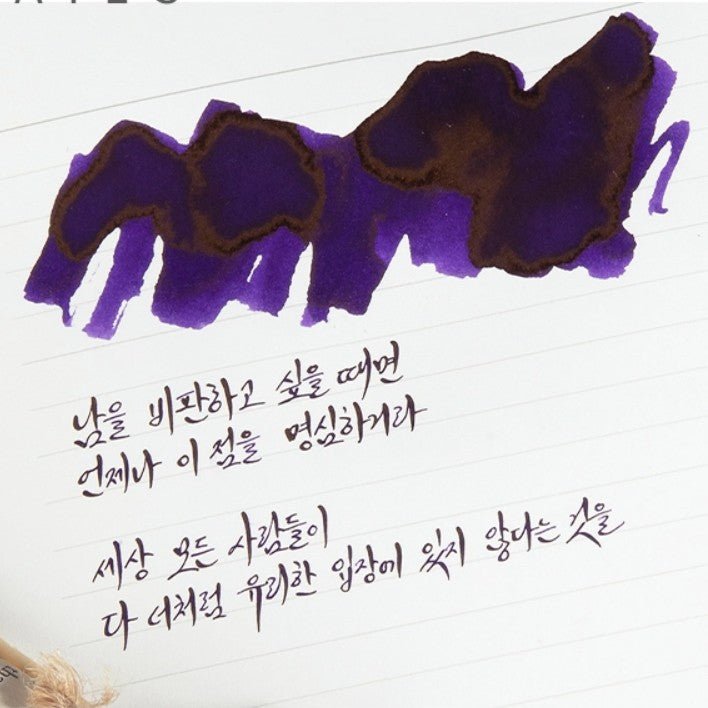 남을 비판하고 싶을 때면
언제나 이 점을 명심하거라
세상 모든 사람들이
다 너처럼 유리한 입장에 있지 않다는 것을